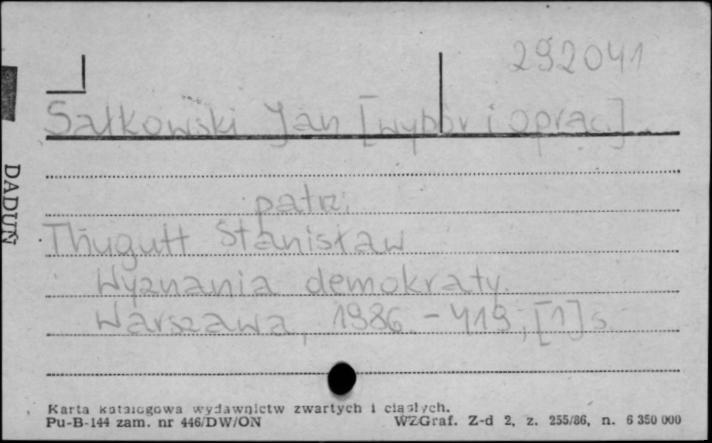 292041
Sałkowski Jan [wybór i oprac.]
patrz:
Thugutt Stanisław
Wyznania demokraty.
Warszawa, 1986. - 419, [1] s.
DADUŃ
Karta katalogowa wydawnictw zwartych i ciągłych.
Pu-B-144 zam. nr 446/DW/ON
WZGraf. Z-d 2, z. 255/86, n. 6 350 000